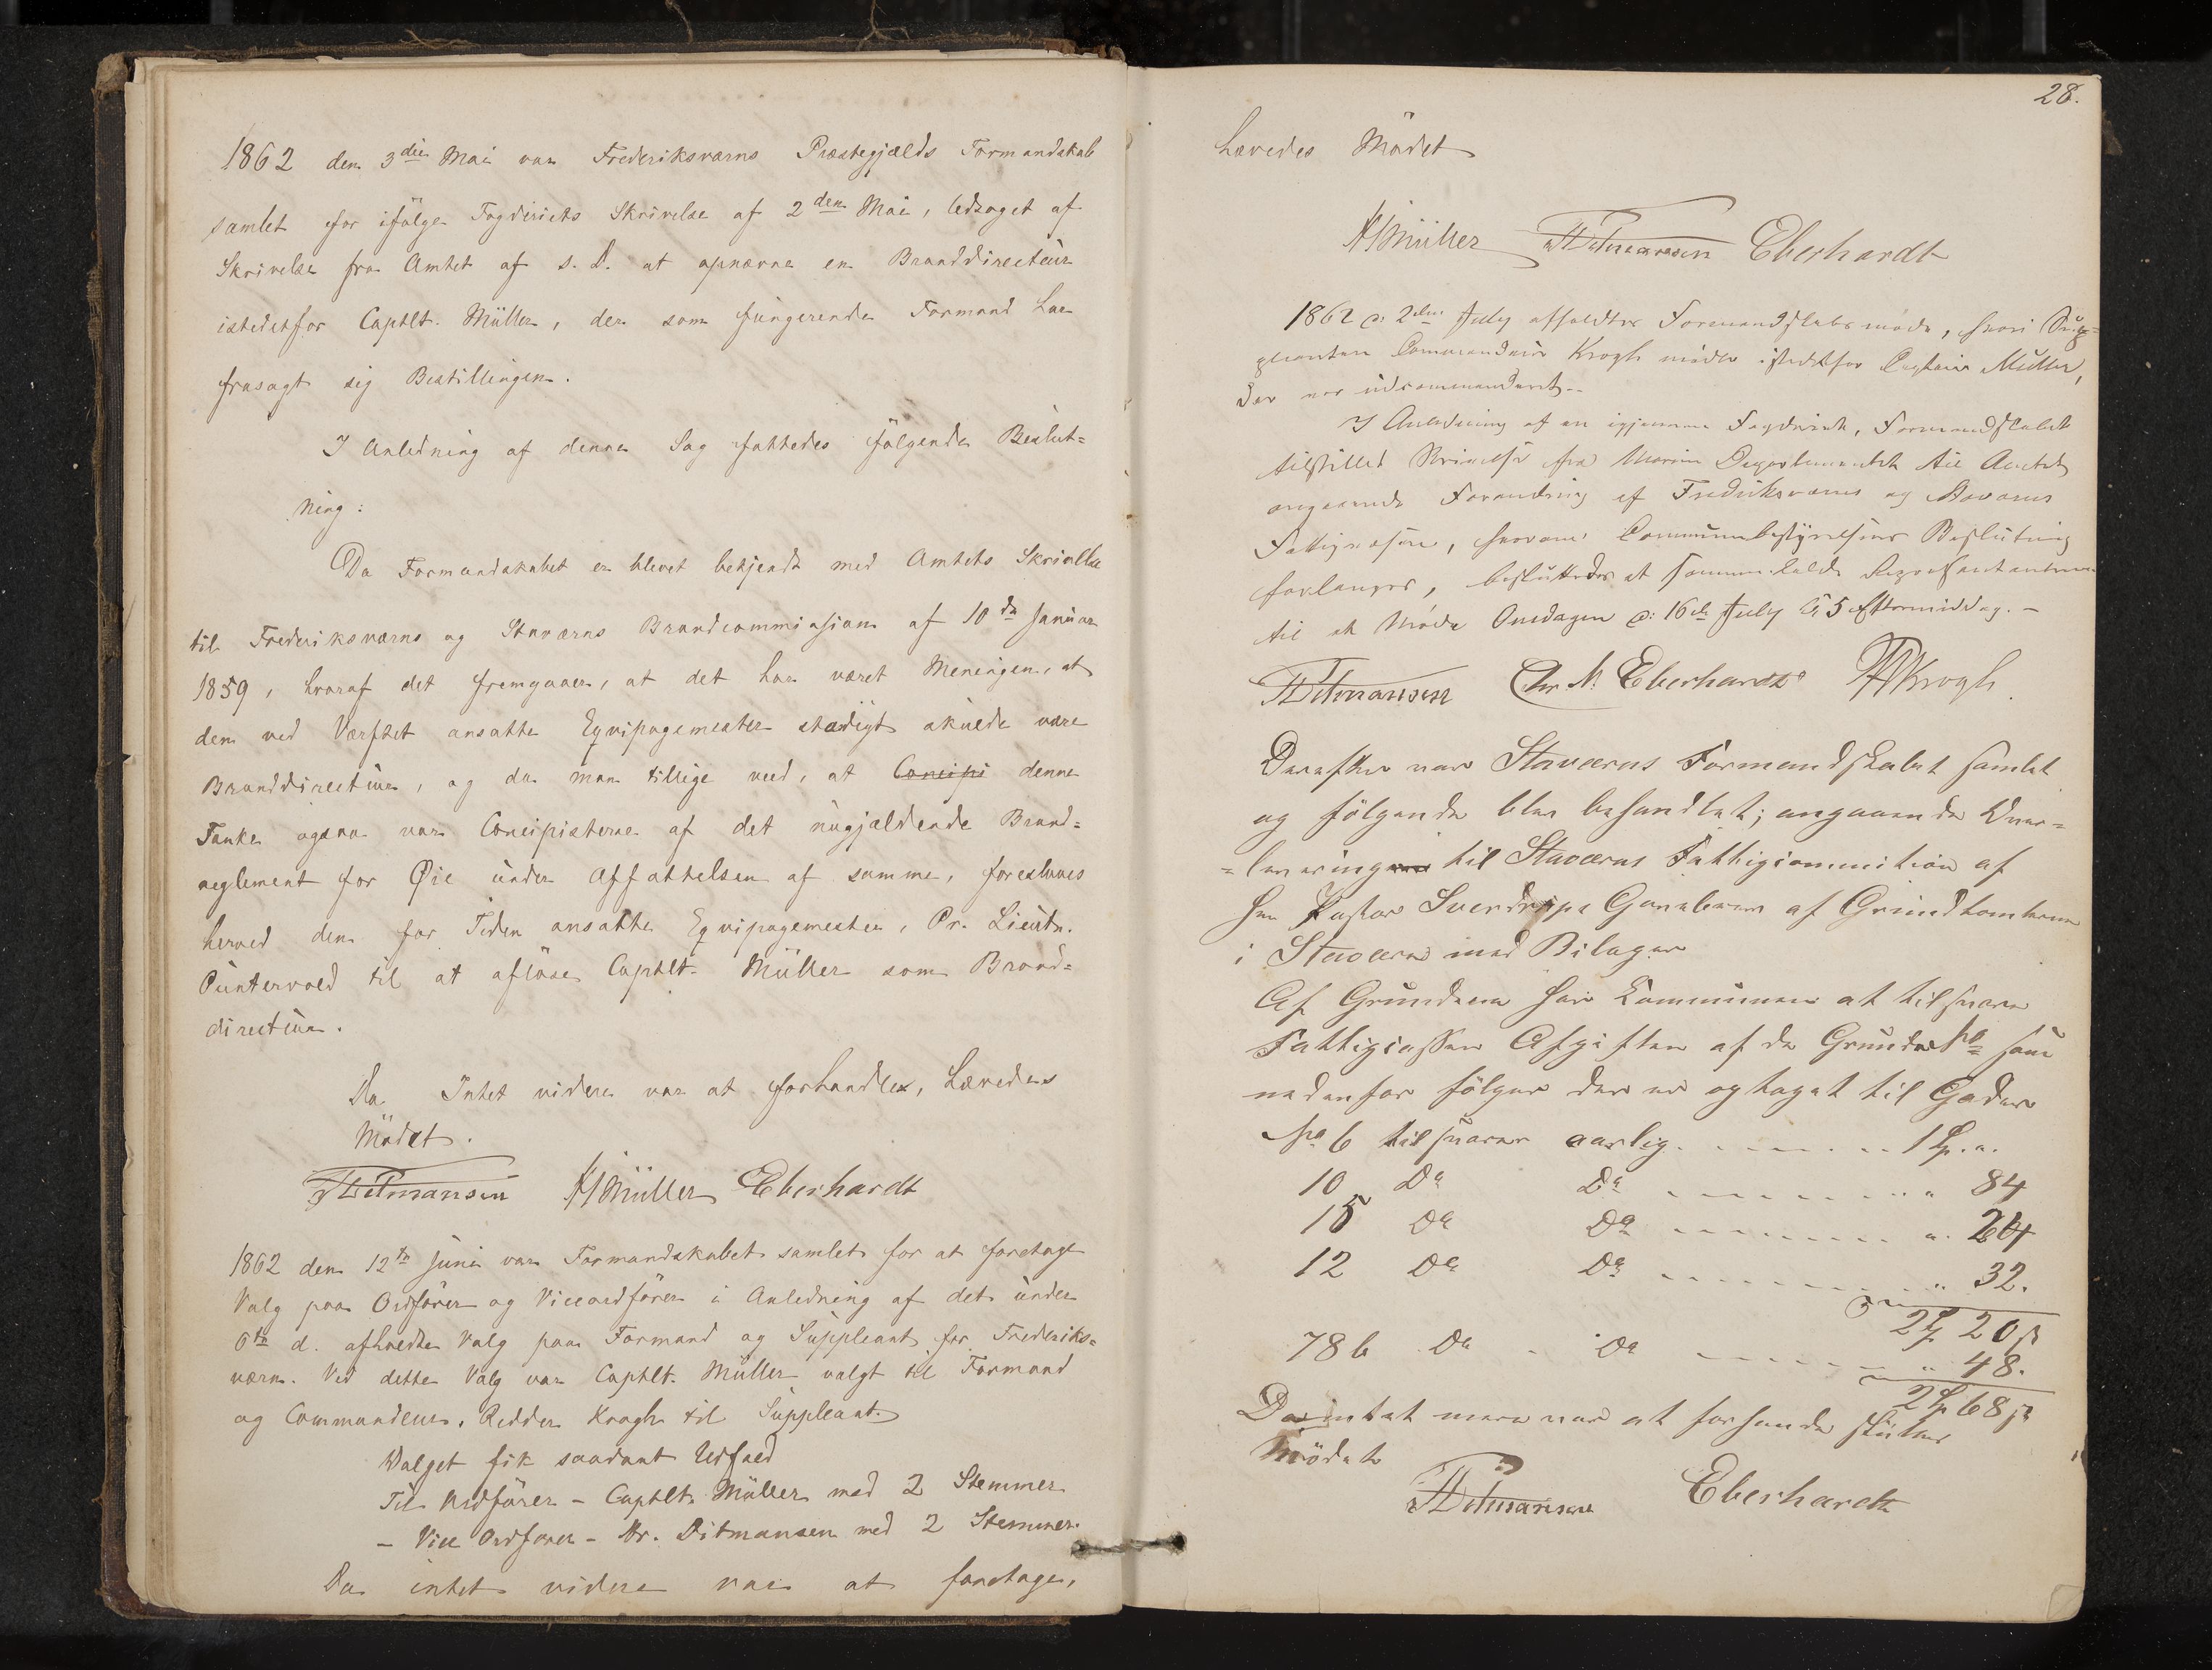 1862 den 3die Mai var Frederiksværns Præstegjælds Formandskab
samlet for ifölge Fogderiets Skrivelse af 2den Mai, ledsaget af
Skrivelse fra Amtet af s. D. at opnævne en Branddirecteur
istedetfor Captlt. Müller, der som fungerende Formand har
frasagt sig Bestillingen.
I Anledning af denne Sag fattedes fölgende Beslut=
ning:
Da Formandskabet er blevet bekjendt med Amtets Skrivelse
til Frederiksværns og Staværns Brandcommission af 10de Januar
1859, hvoraf det fremgaaer, at det har været Meningen, at
den ved Værftet ansatte Eqvipagemester stadigt skulde være
Branddirecteur, og da man tillige veed, at Concipi denne
Tanke ogsaa var Concipisterne af det nugjældende Brand=
reglement for Øie under Affattelsen af samme, foreslaaes
herved den for Tiden ansatte Eqvipagemester, Pr. Lieutn.
Puntervold til at aflöse Captlt. Müller som Brand=
directeur.
Da Intet videre var at forhandle, hævedes
Mödet.
Ditmansen HMüller Eberhardt
1862 den 12te Juni var Formandskabet samlet for at foretage
Valg paa Ordförer og Viceordförer i Anledning af det under
6te d. afholdte Valg paa Formand og Suppleant for Frederiks=
værn. Ved dette Valg var Captlt. Müller valgt til Formand
og Commandeur, Ridder Krogh til Suppleant.
Valget fik saadant Udfald
Til Ordförer - Captlt. Müller med 2 Stemmer
- Vice Ordförer - Hr. Ditmansen med 2 Stemmer.
Da intet videre var at foretage,
28.
hævedes Mödet
HMüller Ditmansen Eberhardt
1862 d: 2den July afholdtes Formandskabsmöde, hvori Sup=
pleanten Commandeur Krogh mödte istedetfor Captain Müller,
der var udcommanderet.
I Anledning af en igjennem Fogderiet, Formandskabet
tilstillet Skrivelse fra Marine Departementet til Amtet
angaaende Forandring af Fredriksværns og Staværns
Fattigvæsen, hvorom Communebestyrelsens Beslutning
forlanges, besluttedes at sammenkalde Repræsentanterne
til et Möde Onsdagen d: 16de July Kl 5 Eftermiddag. -
Ditmansen Chr. N. Eberhardt Krogh
Derefter var Staværns Formandskabet samlet
og fölgende blev behandlet; angaaende Over=
=leveringen til Staværns Fattigcommition af
Her Pastor Sverdrups Gavebrev af Grundtomterne
i Staværn med Bilager
Af Grundene har Kommunen at tilsvare
Fattigcassen Afgiften af de Grunde No som
nedenfor fölger der er optaget til Gader
No 6 tilsvarer aarlig . . . . . . . 1 Sp. „.
10 Do Do . . . . . . . „ 84
15 Do Do . . . . . . . „ 24
12 Do Do . . . . . . . „ 32.
2 Sp 20 ß
78 b Do - Do . . . . . . . „ 48.
2 Sp 68 ß
Da intet mere var at forhandle sluttes
Mödet
Ditmansen Eberhardt